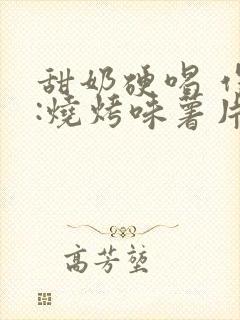 甜奶硬唱
:燒烤味薯片
高芳堃